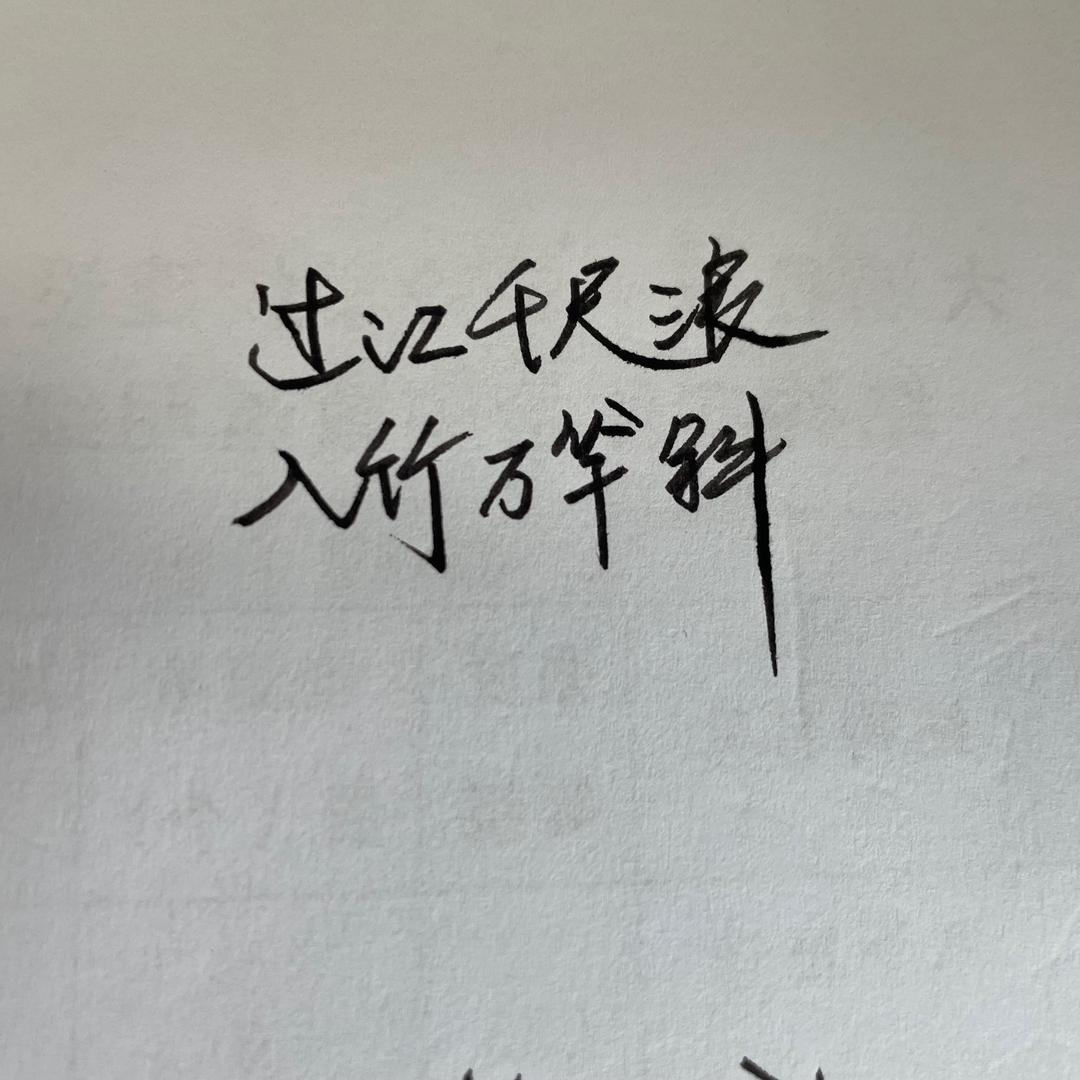 过江千尺浪
入竹万竿斜